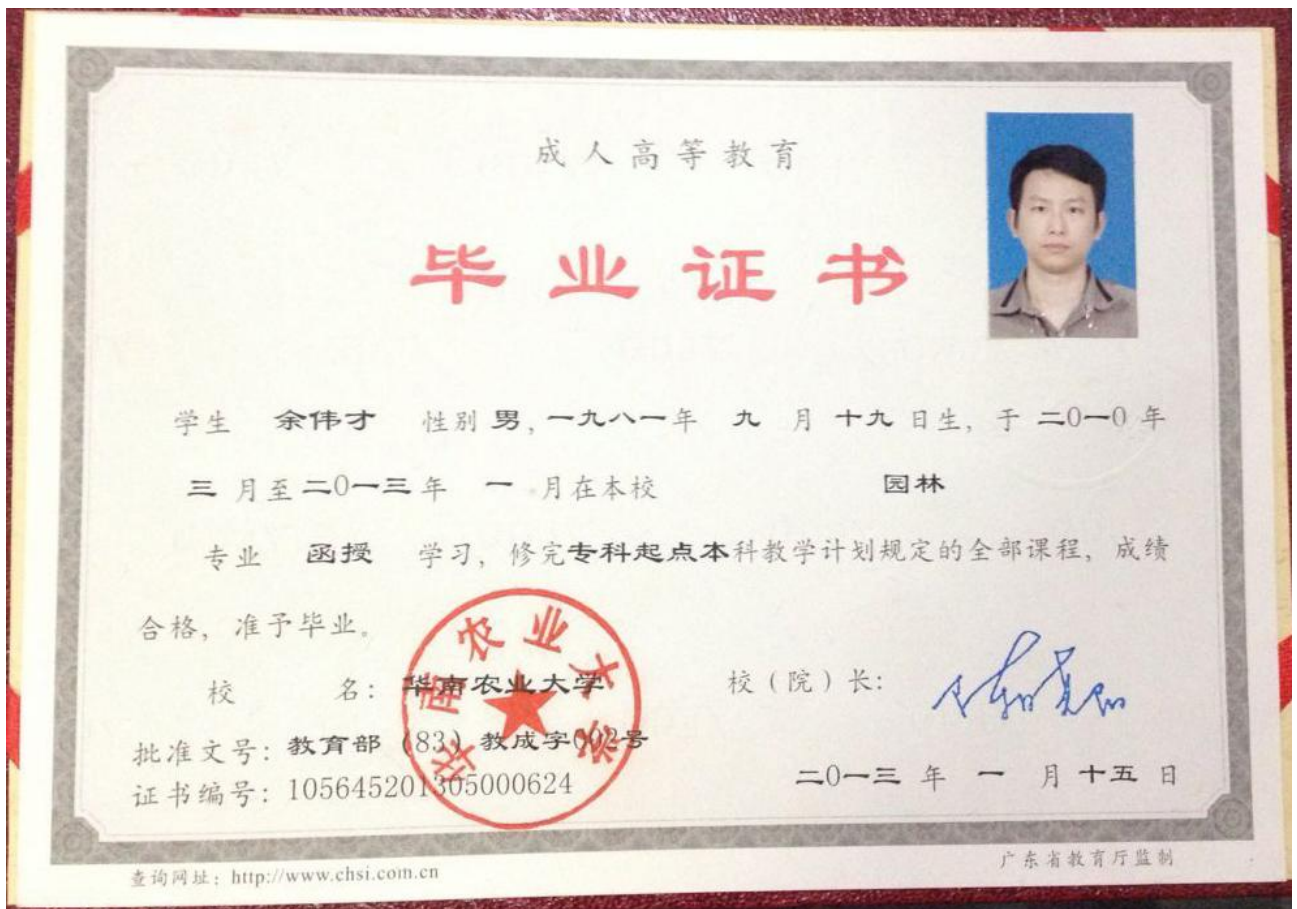 成人高等教育
毕业证书
学生 余伟才 性别 男, 一九八一年 九 月 十九 日生, 于 二0一0 年
三 月至 二0一三 年 一 月在本校 园林
专业 函授 学习, 修完专科起点本科教学计划规定的全部课程, 成绩
合格, 准予毕业。
校 名: 华南农业大学
校（院）长:
华南农业大学
批准文号: 教育部 (83) 教成字002号
证书编号: 105645201305000624
二0一三 年 一 月 十五 日
查询网址: http://www.chsi.com.cn
广东省教育厅监制